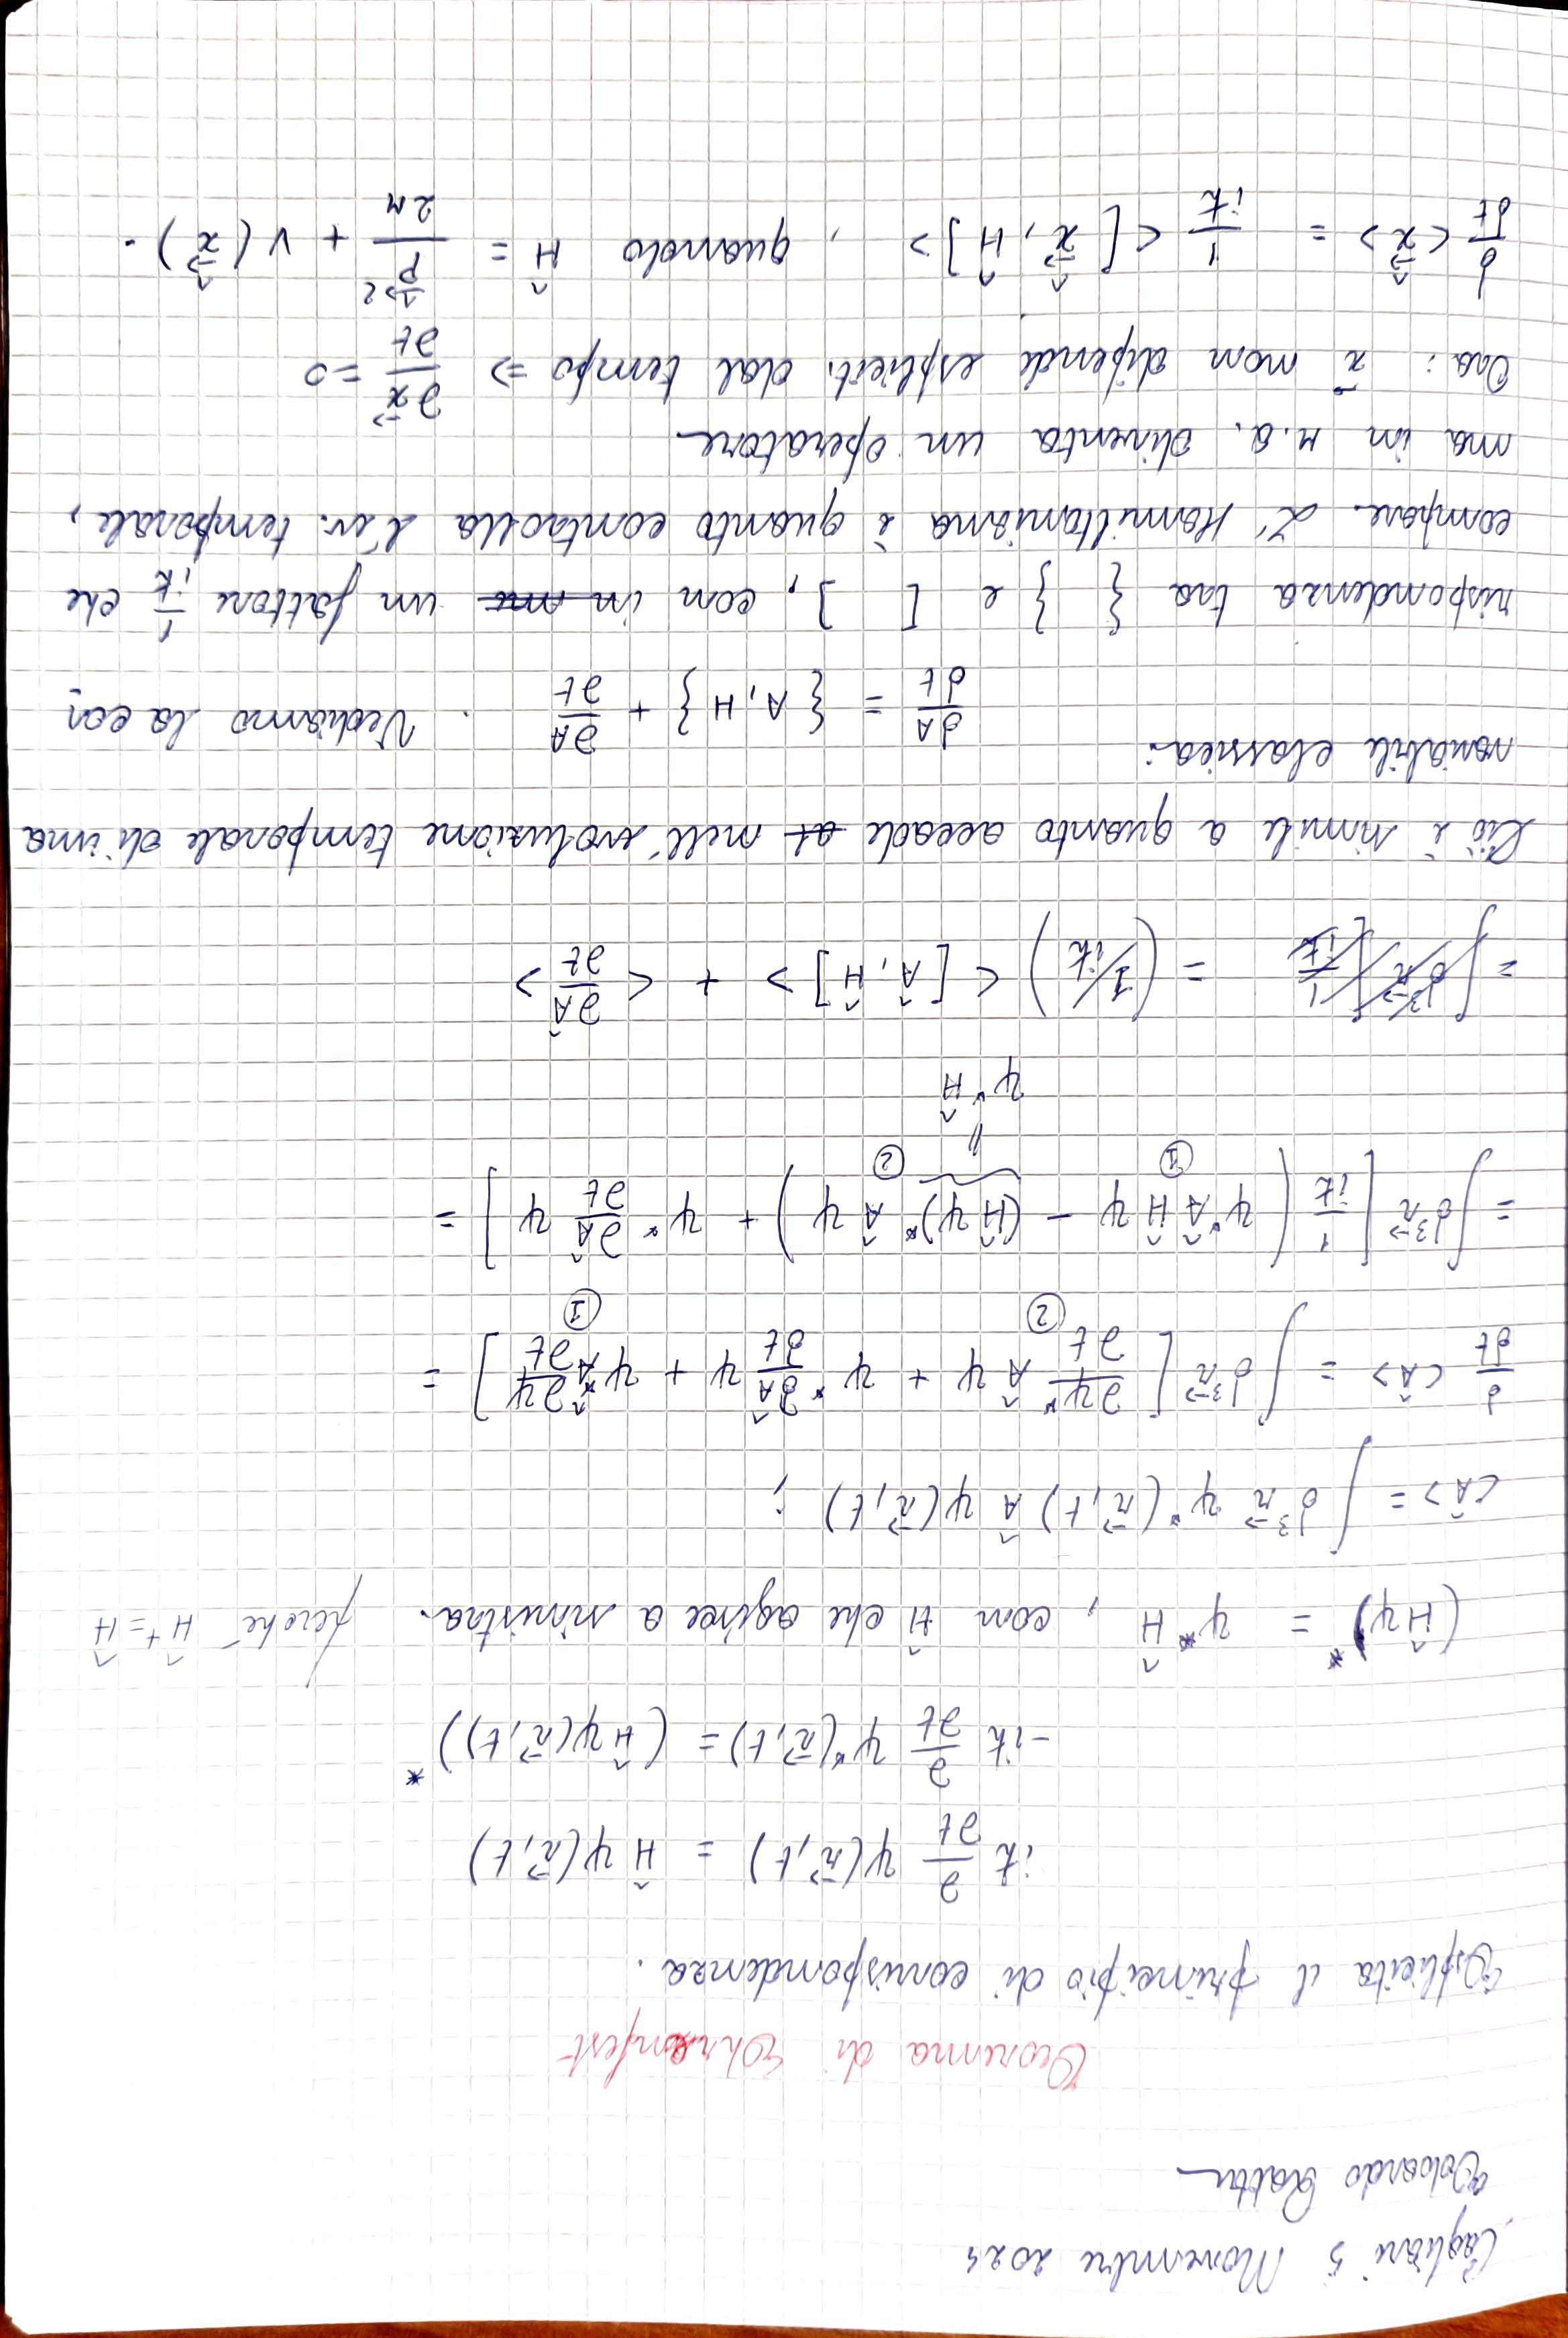 Cagliari 5 Novembre 2024
Edoardo Rattu
Teorema di Ehrenfest
Esplicita il principio di corrispondenza.
iħ ∂/∂t ψ(r⃗,t) = Ĥ ψ(r⃗,t)
-iħ ∂/∂t ψ*(r⃗,t) = (Ĥψ(r⃗,t))*
(Ĥψ)* = ψ*Ĥ , con Ĥ che agisce a sinistra. perché Ĥ⁺=Ĥ
<Â> = ∫ d³r⃗ ψ*(r⃗,t) Â ψ(r⃗,t) ;
d/dt <Â> = ∫ d³r⃗ [ ∂ψ*/∂t Â ψ + ψ* dÂ/dt ψ + ψ* Â ∂ψ/∂t ] =
② ①
= ∫ d³r⃗ [ 1/iħ ( ψ*ÂĤψ - (Ĥψ)* Âψ ) + ψ* ∂Â/∂t ψ ] =
① ②
ψ*Ĥ
= ∫ d³r⃗ [ 1/iħ = (1/iħ) < [Â,Ĥ] > + < ∂Â/∂t >
Ciò è simile a quanto accade at nell'evoluzione temporale di una
variabile classica:
dA/dt = {A,H} + ∂A/∂t . Vediamo la cor
rispondenza tra { } e [ ], con in un fattore 1/iħ che
compare. L'Hamiltoniana è quanto controlla l'ev. temporale,
ma in M.Q. diventa un operatore
Ora: x⃗ non dipende esplicit. dal tempo ⇒ ∂x⃗/∂t = 0
d/dt <x⃗̂> = 1/iħ < [x⃗̂, Ĥ] > , quando Ĥ = p⃗̂²/2M + V(x⃗̂).